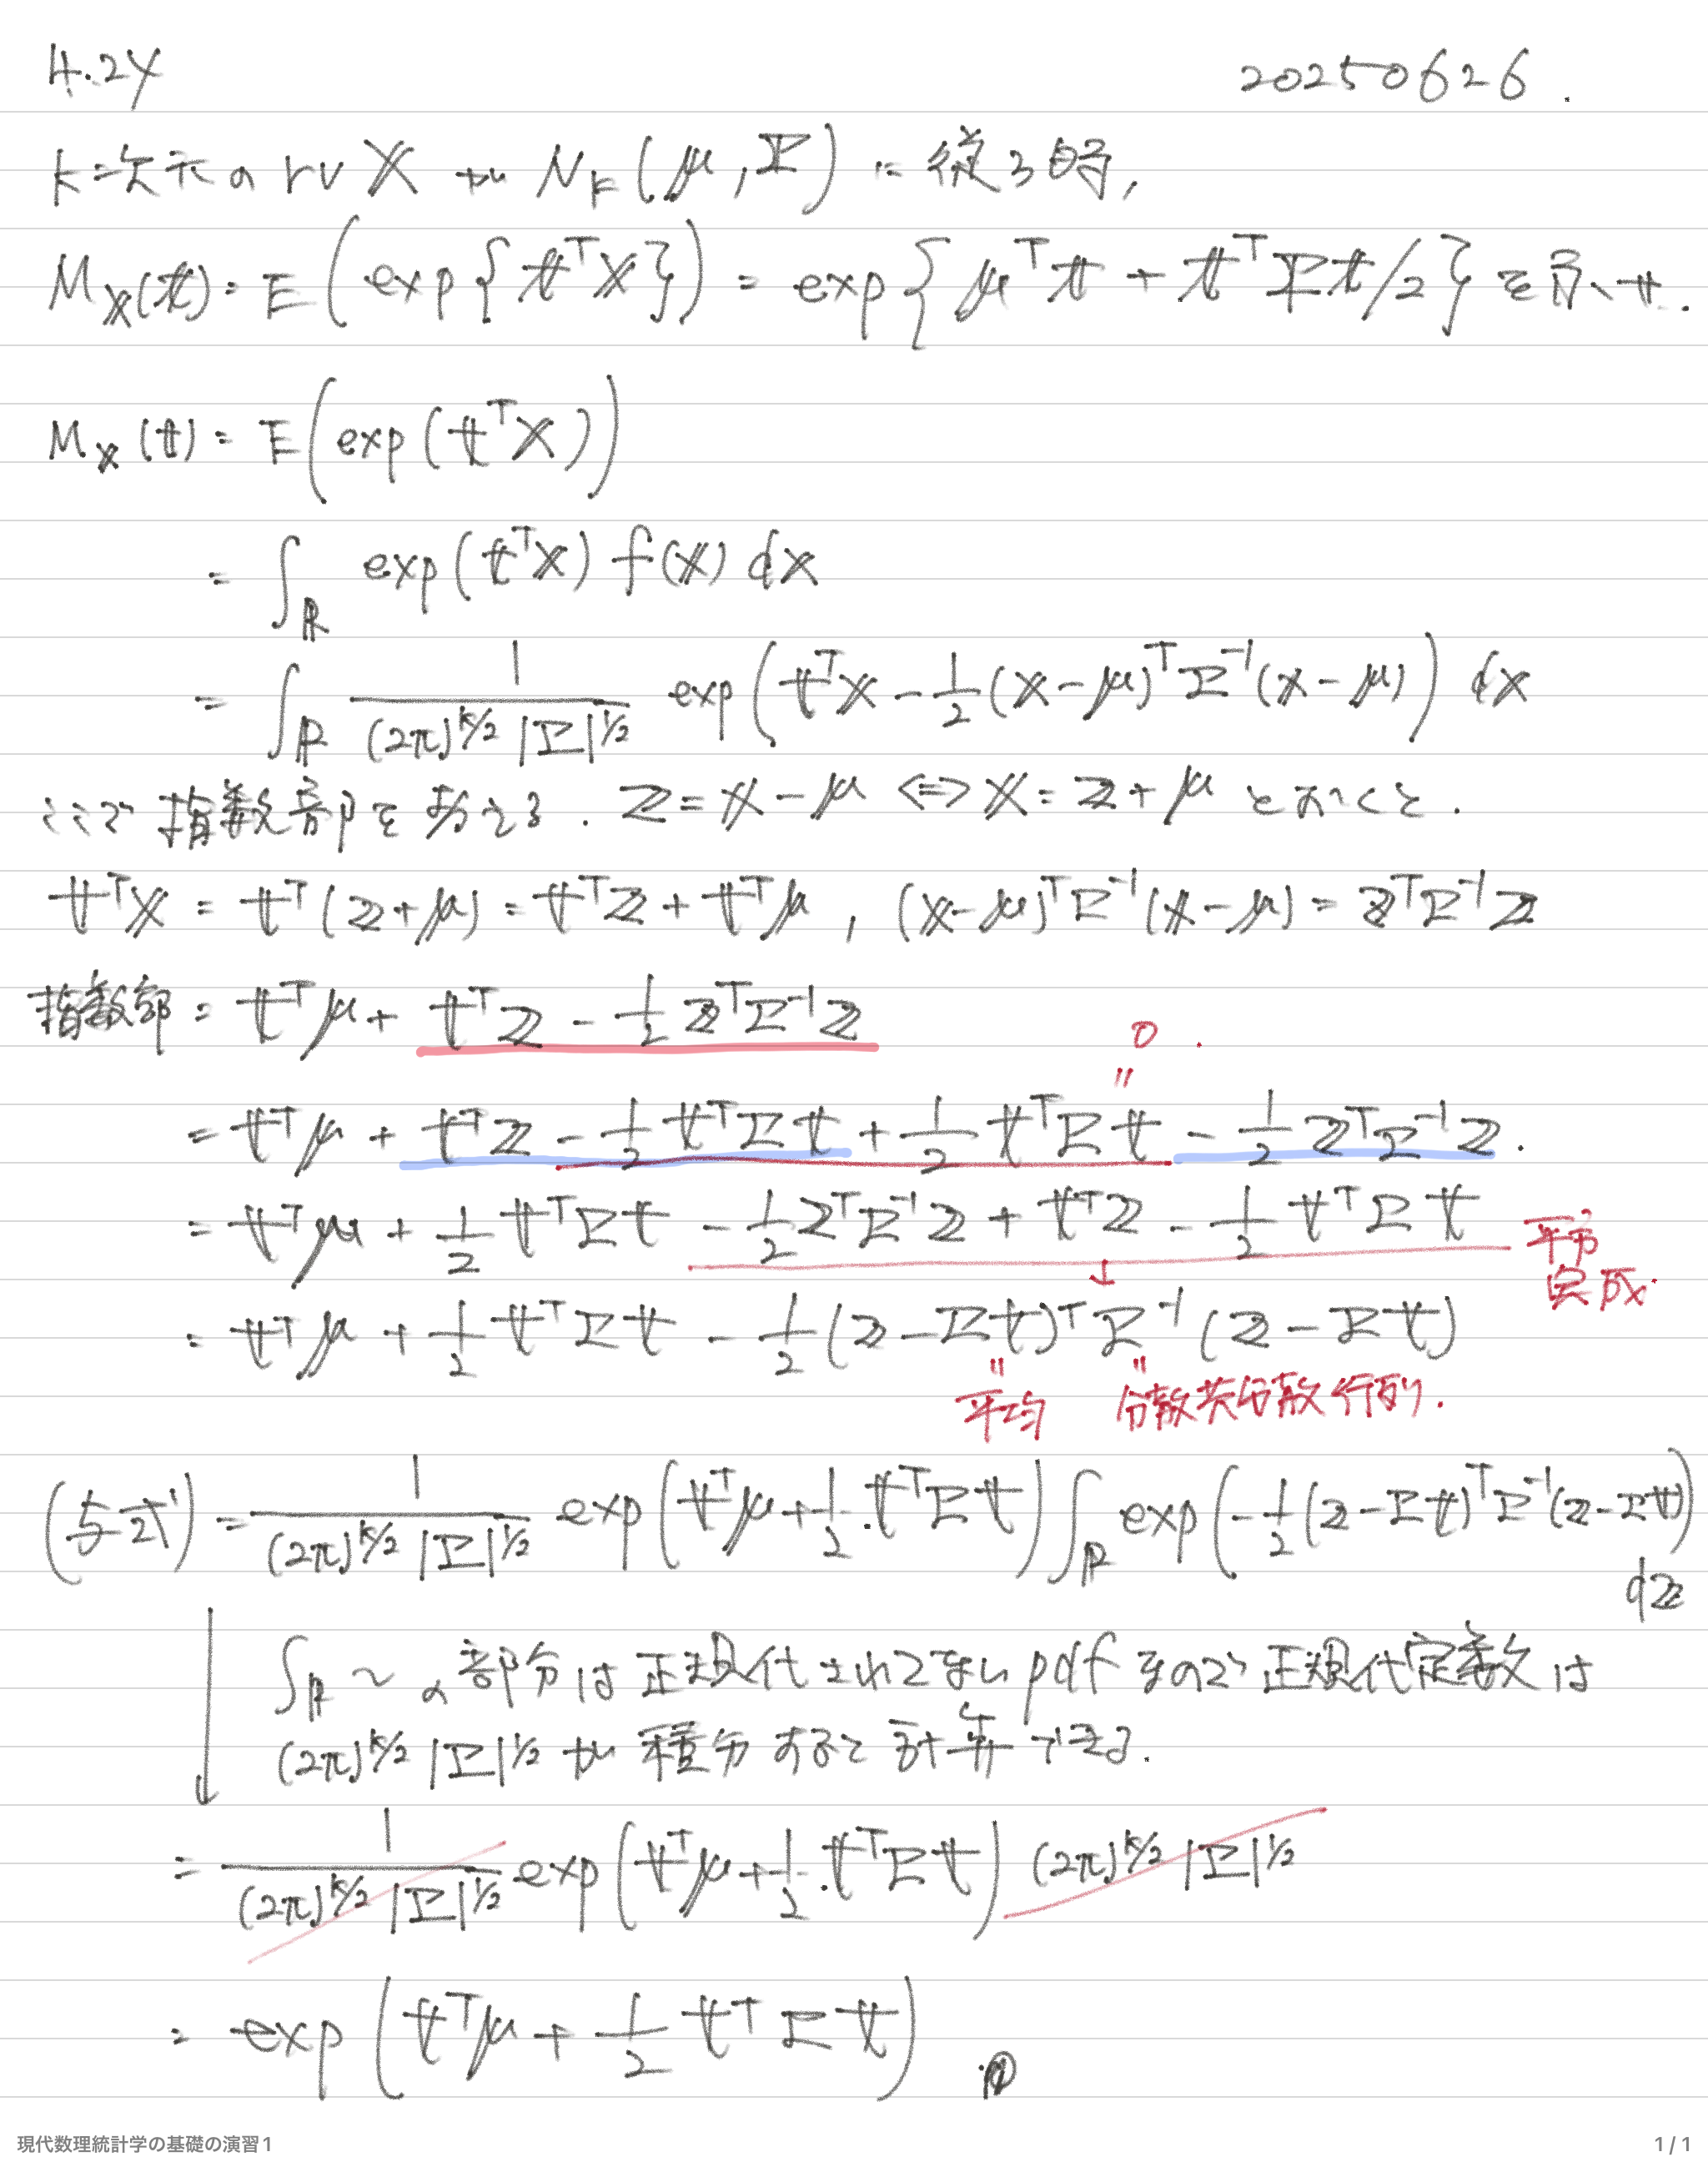 4.24 20250626.
k次元の rv X が N_k(μ, Σ) に従う時,
M_X(t) = E(exp{t^T X}) = exp{μ^T t + t^T Σ t/2} を示せ.
M_X(t) = E(exp(t^T X))
= ∫_R exp(t^T x) f(x) dx
= ∫_R 1/((2π)^{k/2} |Σ|^{1/2}) exp(t^T x - 1/2 (x-μ)^T Σ^{-1} (x-μ)) dx
ここで 指数部を考える. z = x - μ ⇔ x = z + μ とおくと.
t^T x = t^T(z+μ) = t^T z + t^T μ, (x-μ)^T Σ^{-1} (x-μ) = z^T Σ^{-1} z
指数部 = t^T μ + t^T z - 1/2 z^T Σ^{-1} z
0.
〃
= t^T μ + t^T z - 1/2 t^T Σ t + 1/2 t^T Σ t - 1/2 z^T Σ^{-1} z.
= t^T μ + 1/2 t^T Σ t - 1/2 z^T Σ^{-1} z + t^T z - 1/2 t^T Σ t 平方完成.
↓
= t^T μ + 1/2 t^T Σ t - 1/2 (z - Σt)^T Σ^{-1} (z - Σt)
〃 〃
平均 分散共分散行列.
(与式) = 1/((2π)^{k/2} |Σ|^{1/2}) exp(t^T μ + 1/2 t^T Σ t) ∫_R exp(-1/2 (z - Σt)^T Σ^{-1} (z - Σt)) dz
↓ ∫_R ～ の部分は正規代されてない pdf なので 正規代定数は
(2π)^{k/2} |Σ|^{1/2} が積分すると計算できる.
= 1/((2π)^{k/2} |Σ|^{1/2}) exp(t^T μ + 1/2 t^T Σ t) (2π)^{k/2} |Σ|^{1/2}
= exp(t^T μ + 1/2 t^T Σ t)
現代数理統計学の基礎の演習1 1 / 1